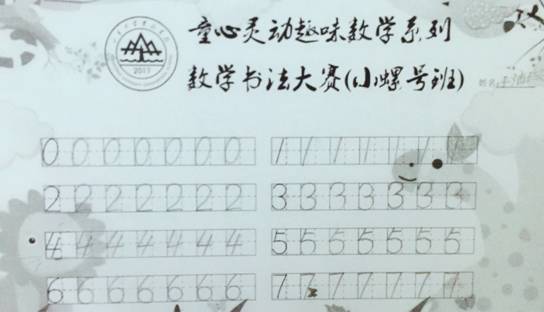 童心灵动趣味数学系列
数学书法大赛(小螺号班)
姓名:
2017
0 0 0 0 0 0 0 1 1 1 1 1 1 1
2 2 2 2 2 2 2 3 3 3 3 3 3 3
4 4 4 4 4 4 4 5 5 5 5 5 5 5
6 6 6 6 6 6 6 7 7 7 7 7 7 7